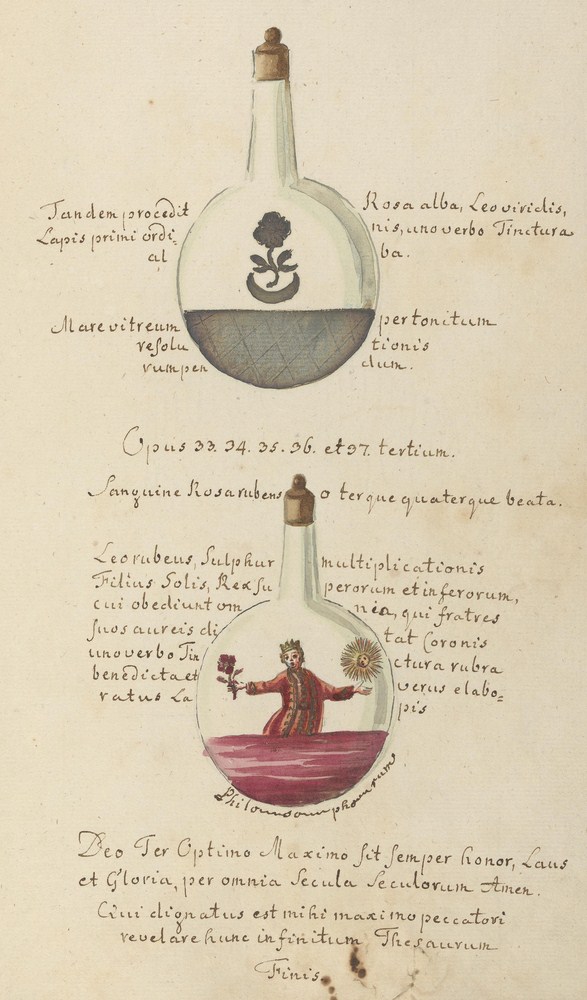 Tandem procedit Rosa alba, Leo viridis,
Lapis primi ordi- nis, uno verbo Tinctura
al ba.
Mare vitreum pertonitum
resolu tionis
rumpen dum.
Opus 33. 34. 35. 36. et 37. tertium.
Sanguine Rosa rubens o terque quaterque beata.
Leo rubeus, Sulphur multiplicationis
Filius Solis, Rex su perorum et inferorum,
cui obediunt om nia, qui fratres
suos aureis di tat Coronis
uno verbo Tin ctura rubra
benedicta et verus elabo-
ratus La pis
Deo Ter Optimo Maximo sit semper honor, Laus
et Gloria, per omnia Secula Seculorum Amen.
Qui dignatus est mihi maximo peccatori
revelare hunc infinitum Thesaurum
Finis.